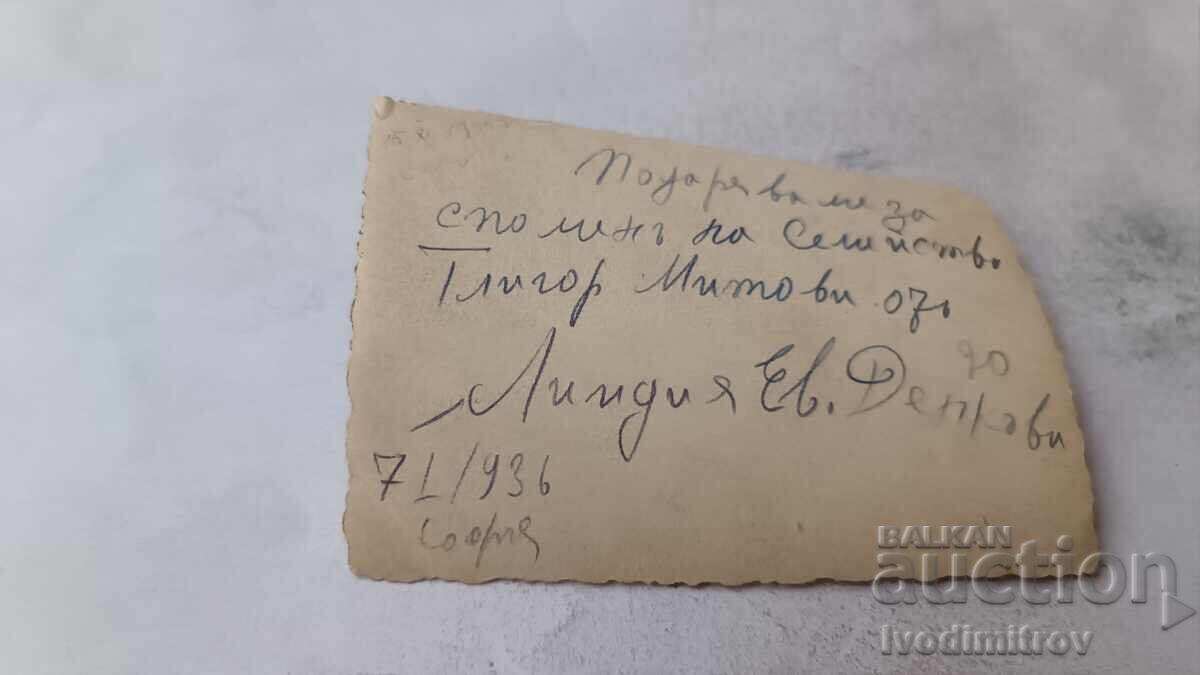 Подаряваме за
споменъ на Семейство
Глигор Митови отъ
Лиидия Ев. Денкови
20
7 I /936
София
BALKAN
auction
Ivodimitrov